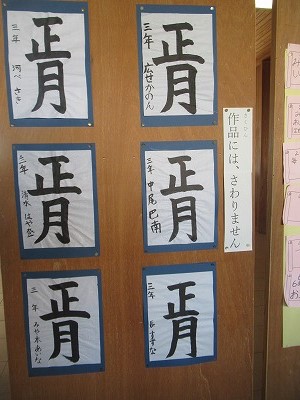 正月
三年 河べ さき
正月
三年 広せかのん
正月
三年 はやな
正月
三年 中尾 巴南
正月
三年 みや木あいな
正月
三年
さくひん
作品には、さわりません